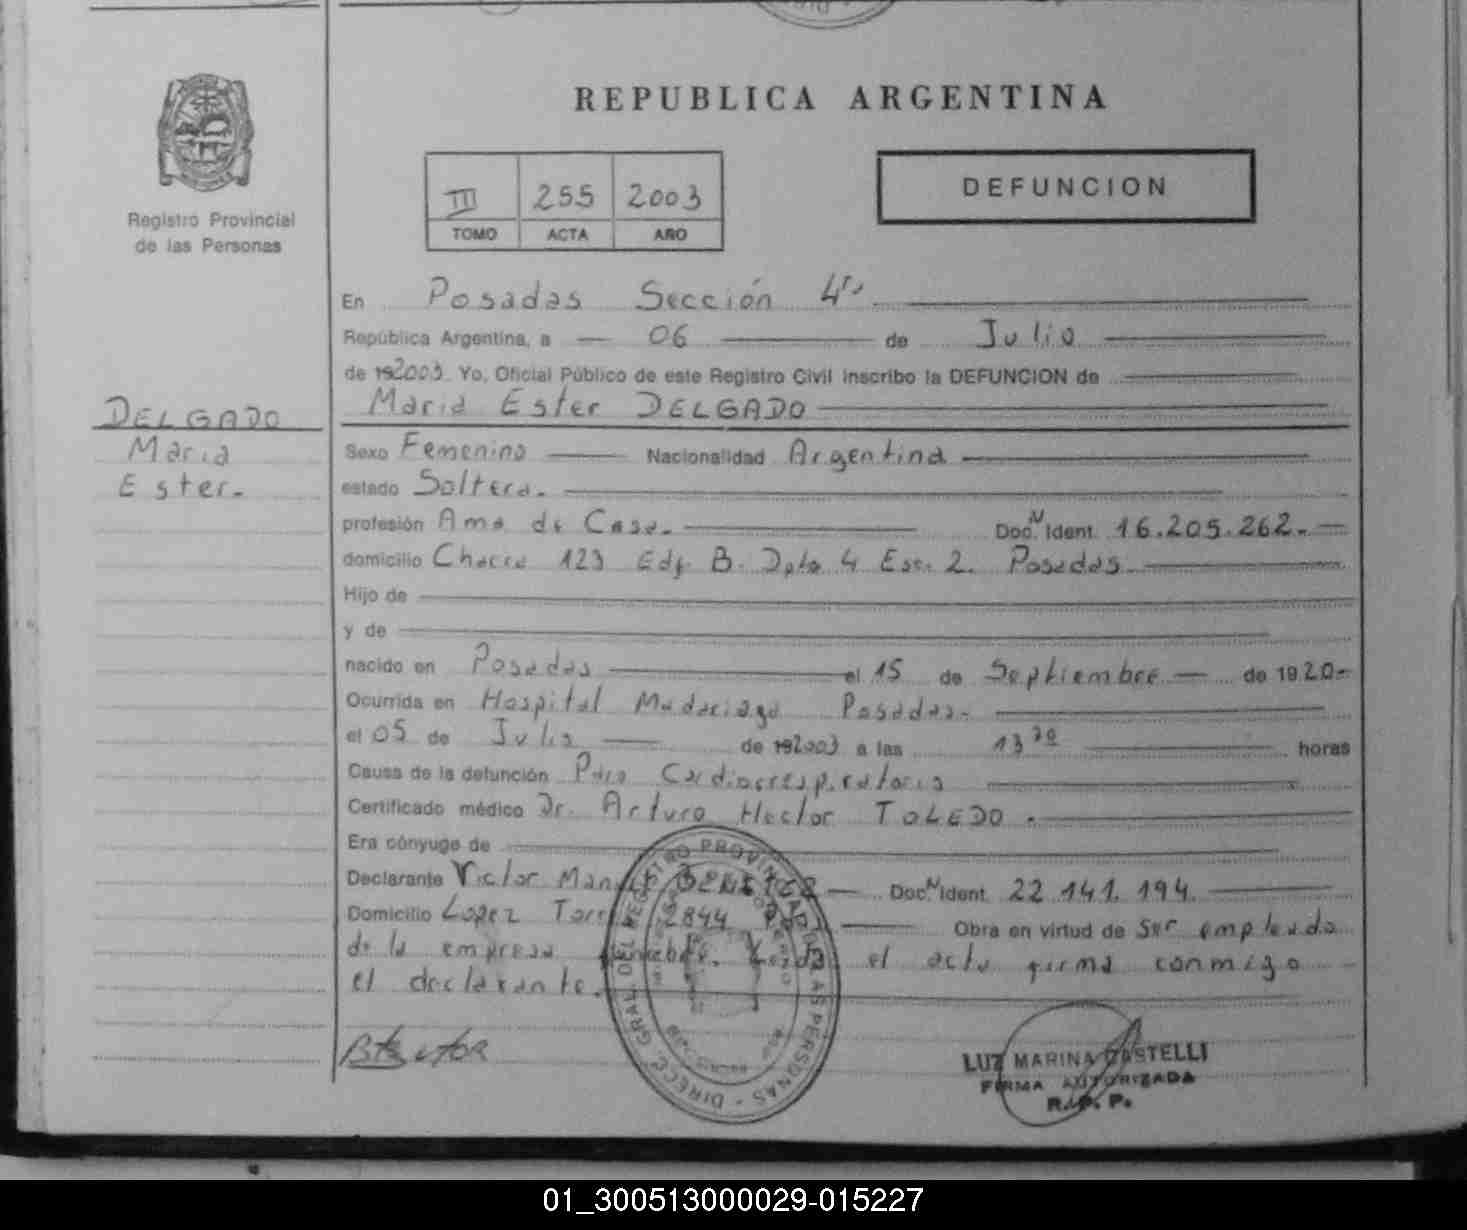 REPUBLICA ARGENTINA
Registro Provincial
de las Personas
III 255 2003
TOMO ACTA AÑO
DEFUNCION
En Posadas Sección 4ta
República Argentina, a 06 de Julio
de 192003 Yo, Oficial Público de este Registro Civil inscribo la DEFUNCION de
Maria Ester DELGADO
DELGADO
Maria
Ester.
Sexo Femenino Nacionalidad Argentina
estado Soltera.
profesión Ama de Casa. Doc. N Ident. 16.205.262.
domicilio Chacra 123 Edf. B. Dpto 4 Esc. 2. Posadas
Hijo de
y de
nacido en Posadas el 15 de Septiembre de 1920
Ocurrida en Hospital Madariaga Posadas.
el 05 de Julio de 192003 a las 13 30 horas
Causa de la defunción Paro Cardiorrespiratorio
Certificado médico Dr. Arturo Hector TOLEDO.
Era cónyuge de
Declarante Victor Manuel Doc. N Ident. 22.141.194.
Domicilio Lopez Torres 2844 Obra en virtud de Ser empleado
de la empresa funebre. Leida el acta firma conmigo
el declarante.
DIRECC. GRAL. DEL REGISTRO PROVINCIAL DE LAS PERSONAS
LUZ MARINA CASTELLI
FIRMA AUTORIZADA
R. P. P.
01_300513000029-015227